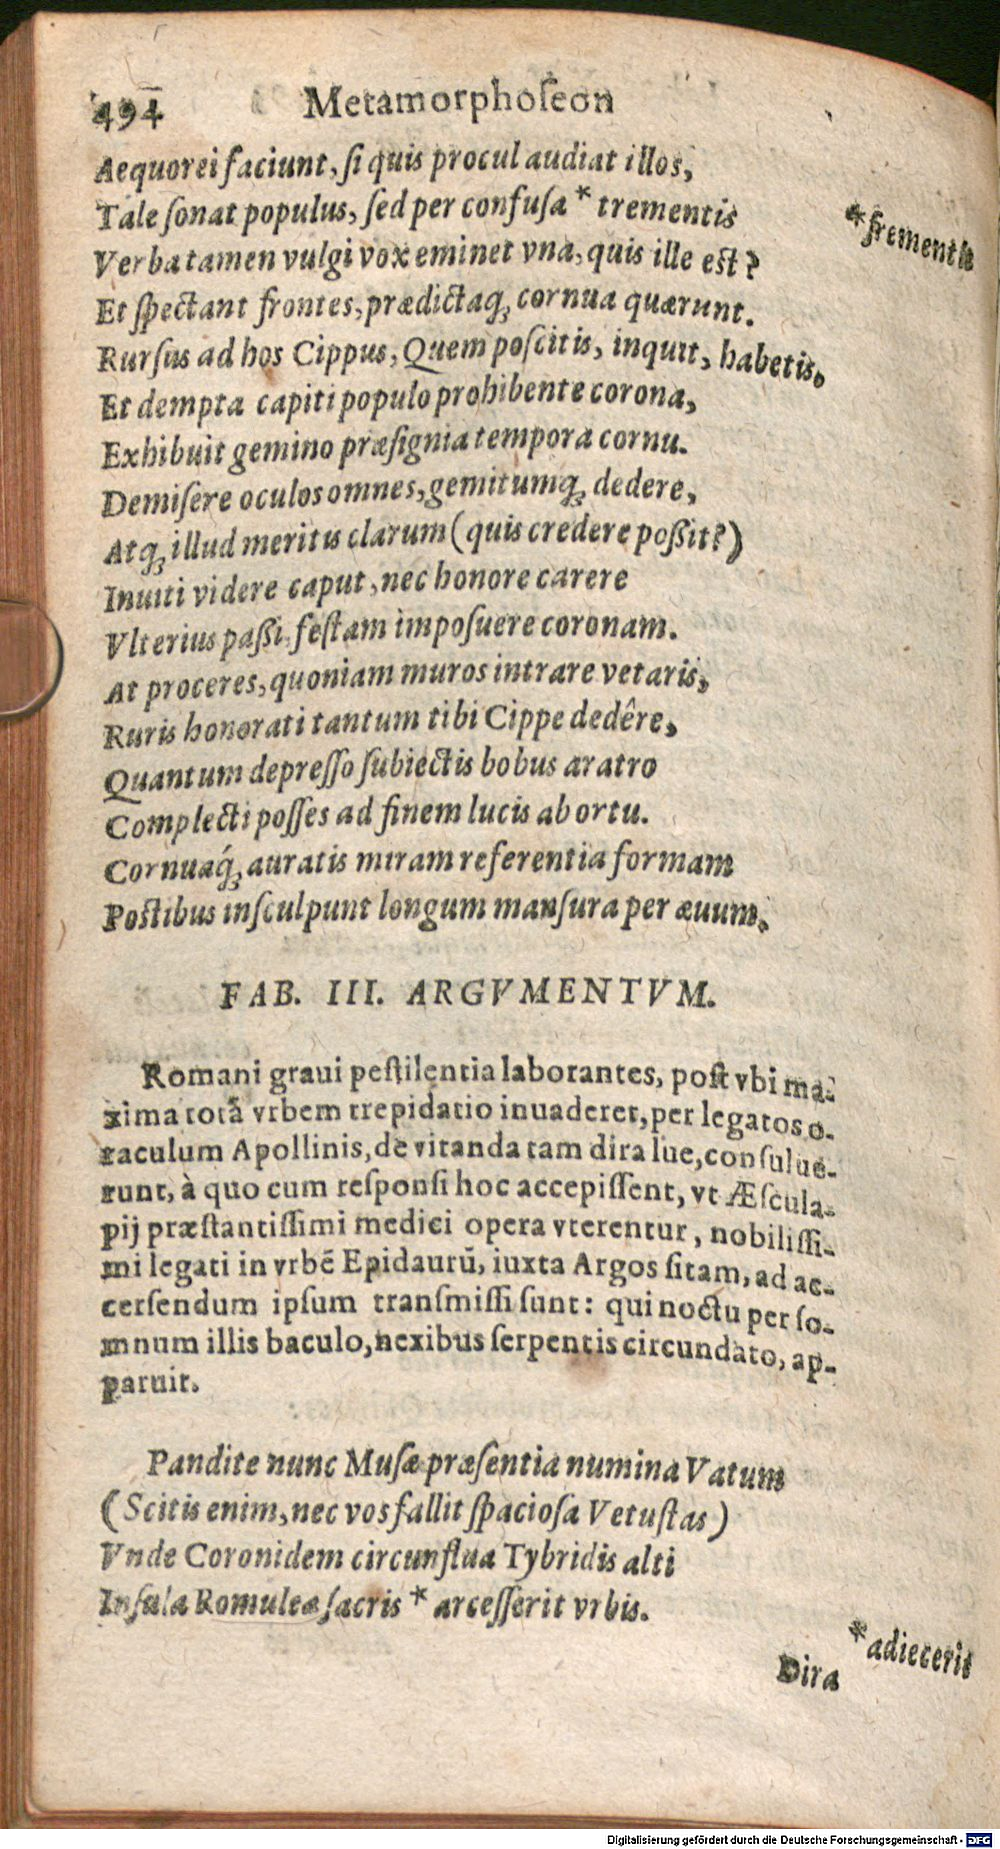 494 Metamorphoſeon
Aequorei faciunt, ſi quis procul audiat illos,
Tale ſonat populus, ſed per confuſa * trementis
*frementis
Verba tamen vulgi vox eminet vna, quis ille est?
Et ſpectant frontes, prædictaq́; cornua quærunt.
Rurſus ad hos Cippus, Quem poſcitis, inquit, habetis,
Et dempta capiti populo prohibente corona,
Exhibuit gemino præſignia tempora cornu.
Demiſere oculos omnes, gemitumq́; dedere,
Atq́; illud meritis clarum (quis credere poßit?)
Inuiti videre caput, nec honore carere
Vlterius paßi, feſtam impoſuere coronam.
At proceres, quoniam muros intrare vetaris,
Ruris honorati tantum tibi Cippe dedêre,
Quantum depreſſo ſubiectis bobus aratro
Complecti poſſes ad finem lucis ab ortu.
Cornuaq́; auratis miram referentia formam
Postibus inſculpunt longum manſura per æuum.
FAB. III. ARGVMENTVM.
Romani graui peſtilentia laborantes, poſt vbi ma-
xima totā vrbem trepidatio inuaderet, per legatos o-
raculum Apollinis, de vitanda tam dira lue, conſulue-
runt, à quo cum reſponſi hoc accepiſſent, vt Æſcula-
pij præſtantiſſimi medici opera vterentur, nobiliſſi-
mi legati in vrbē Epidaurū, iuxta Argos ſitam, ad ac-
cerſendum ipſum tranſmiſſi ſunt: qui noctu per ſo-
mnum illis baculo, nexibus ſerpentis circundato, ap-
paruit.
Pandite nunc Muſæ præſentia numina Vatum
(Scitis enim, nec vos fallit ſpacioſa Vetuſtas)
Vnde Coronidem circunflua Tybridis alti
Inſula Romuleæ ſacris * arceſſerit vrbis.
*adiecerit
Dira
Digitalisierung gefördert durch die Deutsche Forschungsgemeinschaft - DFG